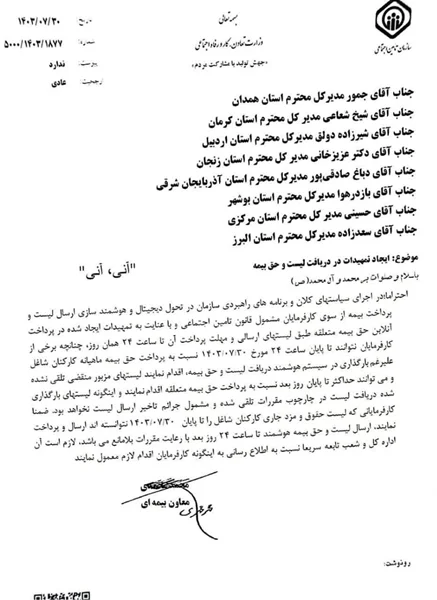 بسمه تعالی
تاریخ: ۱۴۰۳/۰۷/۳۰
وزارت تعاون، کار و رفاه اجتماعی
شماره: ۵۰۰۰/۱۴۰۳/۱۸۷۷
«جهش تولید با مشارکت مردم»
پیوست: ندارد
سازمان تامین اجتماعی
عادی
جناب آقای جمور مدیرکل محترم استان همدان
جناب آقای شیخ شعاعی مدیر کل محترم استان کرمان
جناب آقای شیرزاده دولق مدیرکل محترم استان اردبیل
جناب آقای دکتر عزیزخانی مدیر کل محترم استان زنجان
جناب آقای دباغ صادقی‌پور مدیرکل محترم استان آذربایجان شرقی
جناب آقای بازدرهوا مدیرکل محترم استان بوشهر
جناب آقای حسینی مدیر کل محترم استان مرکزی
جناب آقای سعدزاده مدیرکل محترم استان البرز
موضوع: ایجاد تمهیدات در دریافت لیست و حق بیمه
"آنی، آنی"
باسلام و صلوات بر محمد و آل محمد(ص)
احتراما؛در اجرای سیاستهای کلان و برنامه های راهبردی سازمان در تحول دیجیتال و هوشمند سازی ارسال لیست و
پرداخت بیمه از سوی کارفرمایان مشمول قانون تامین اجتماعی و با عنایت به تمهیدات ایجاد شده در پرداخت
آنلاین حق بیمه متعلقه طبق لیستهای ارسالی و مهلت پرداخت آن تا ساعت ۲۴ همان روز، چنانچه برخی از
کارفرمایان نتوانند تا پایان ساعت ۲۴ مورخ ۱۴۰۳/۰۷/۳۰ نسبت به پرداخت حق بیمه ماهیانه کارکنان شاغل
علیرغم بارگذاری در سیستم هوشمند دریافت لیست و حق بیمه، اقدام نمایند لیستهای مزبور منقضی تلقی نشده
و می توانند حداکثر تا پایان روز بعد نسبت به پرداخت حق بیمه متعلقه اقدام نمایند و اینگونه لیستهای بارگذاری
شده دریافت لیست در چارچوب مقررات تلقی شده و مشمول جرائم تاخیر ارسال لیست نخواهد بود. ضمنا
کارفرمایانی که لیست حقوق و مزد جاری کارکنان شاغل را تا پایان ۱۴۰۳/۰۷/۳۰ نتوانسته اند ارسال و پرداخت
نمایند، ارسال لیست و حق بیمه هوشمند تا ساعت ۲۴ روز بعد با رعایت مقررات بلامانع می باشد. لازم است آن
اداره کل و شعب تابعه سریعا نسبت به اطلاع رسانی به اینگونه کارفرمایان اقدام لازم معمول نمایند
معاون بیمه ای
رونوشت: